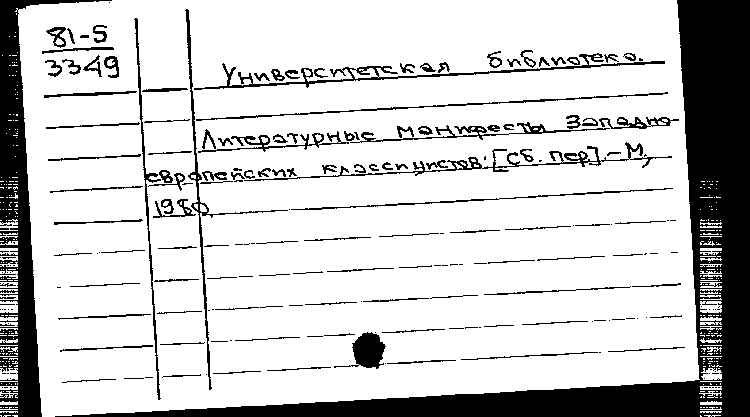 81-5
3349
Университетская библиотека.
Литературные манифесты Западно-
европейских классицистов: [Сб. пер.]. – М,
1980